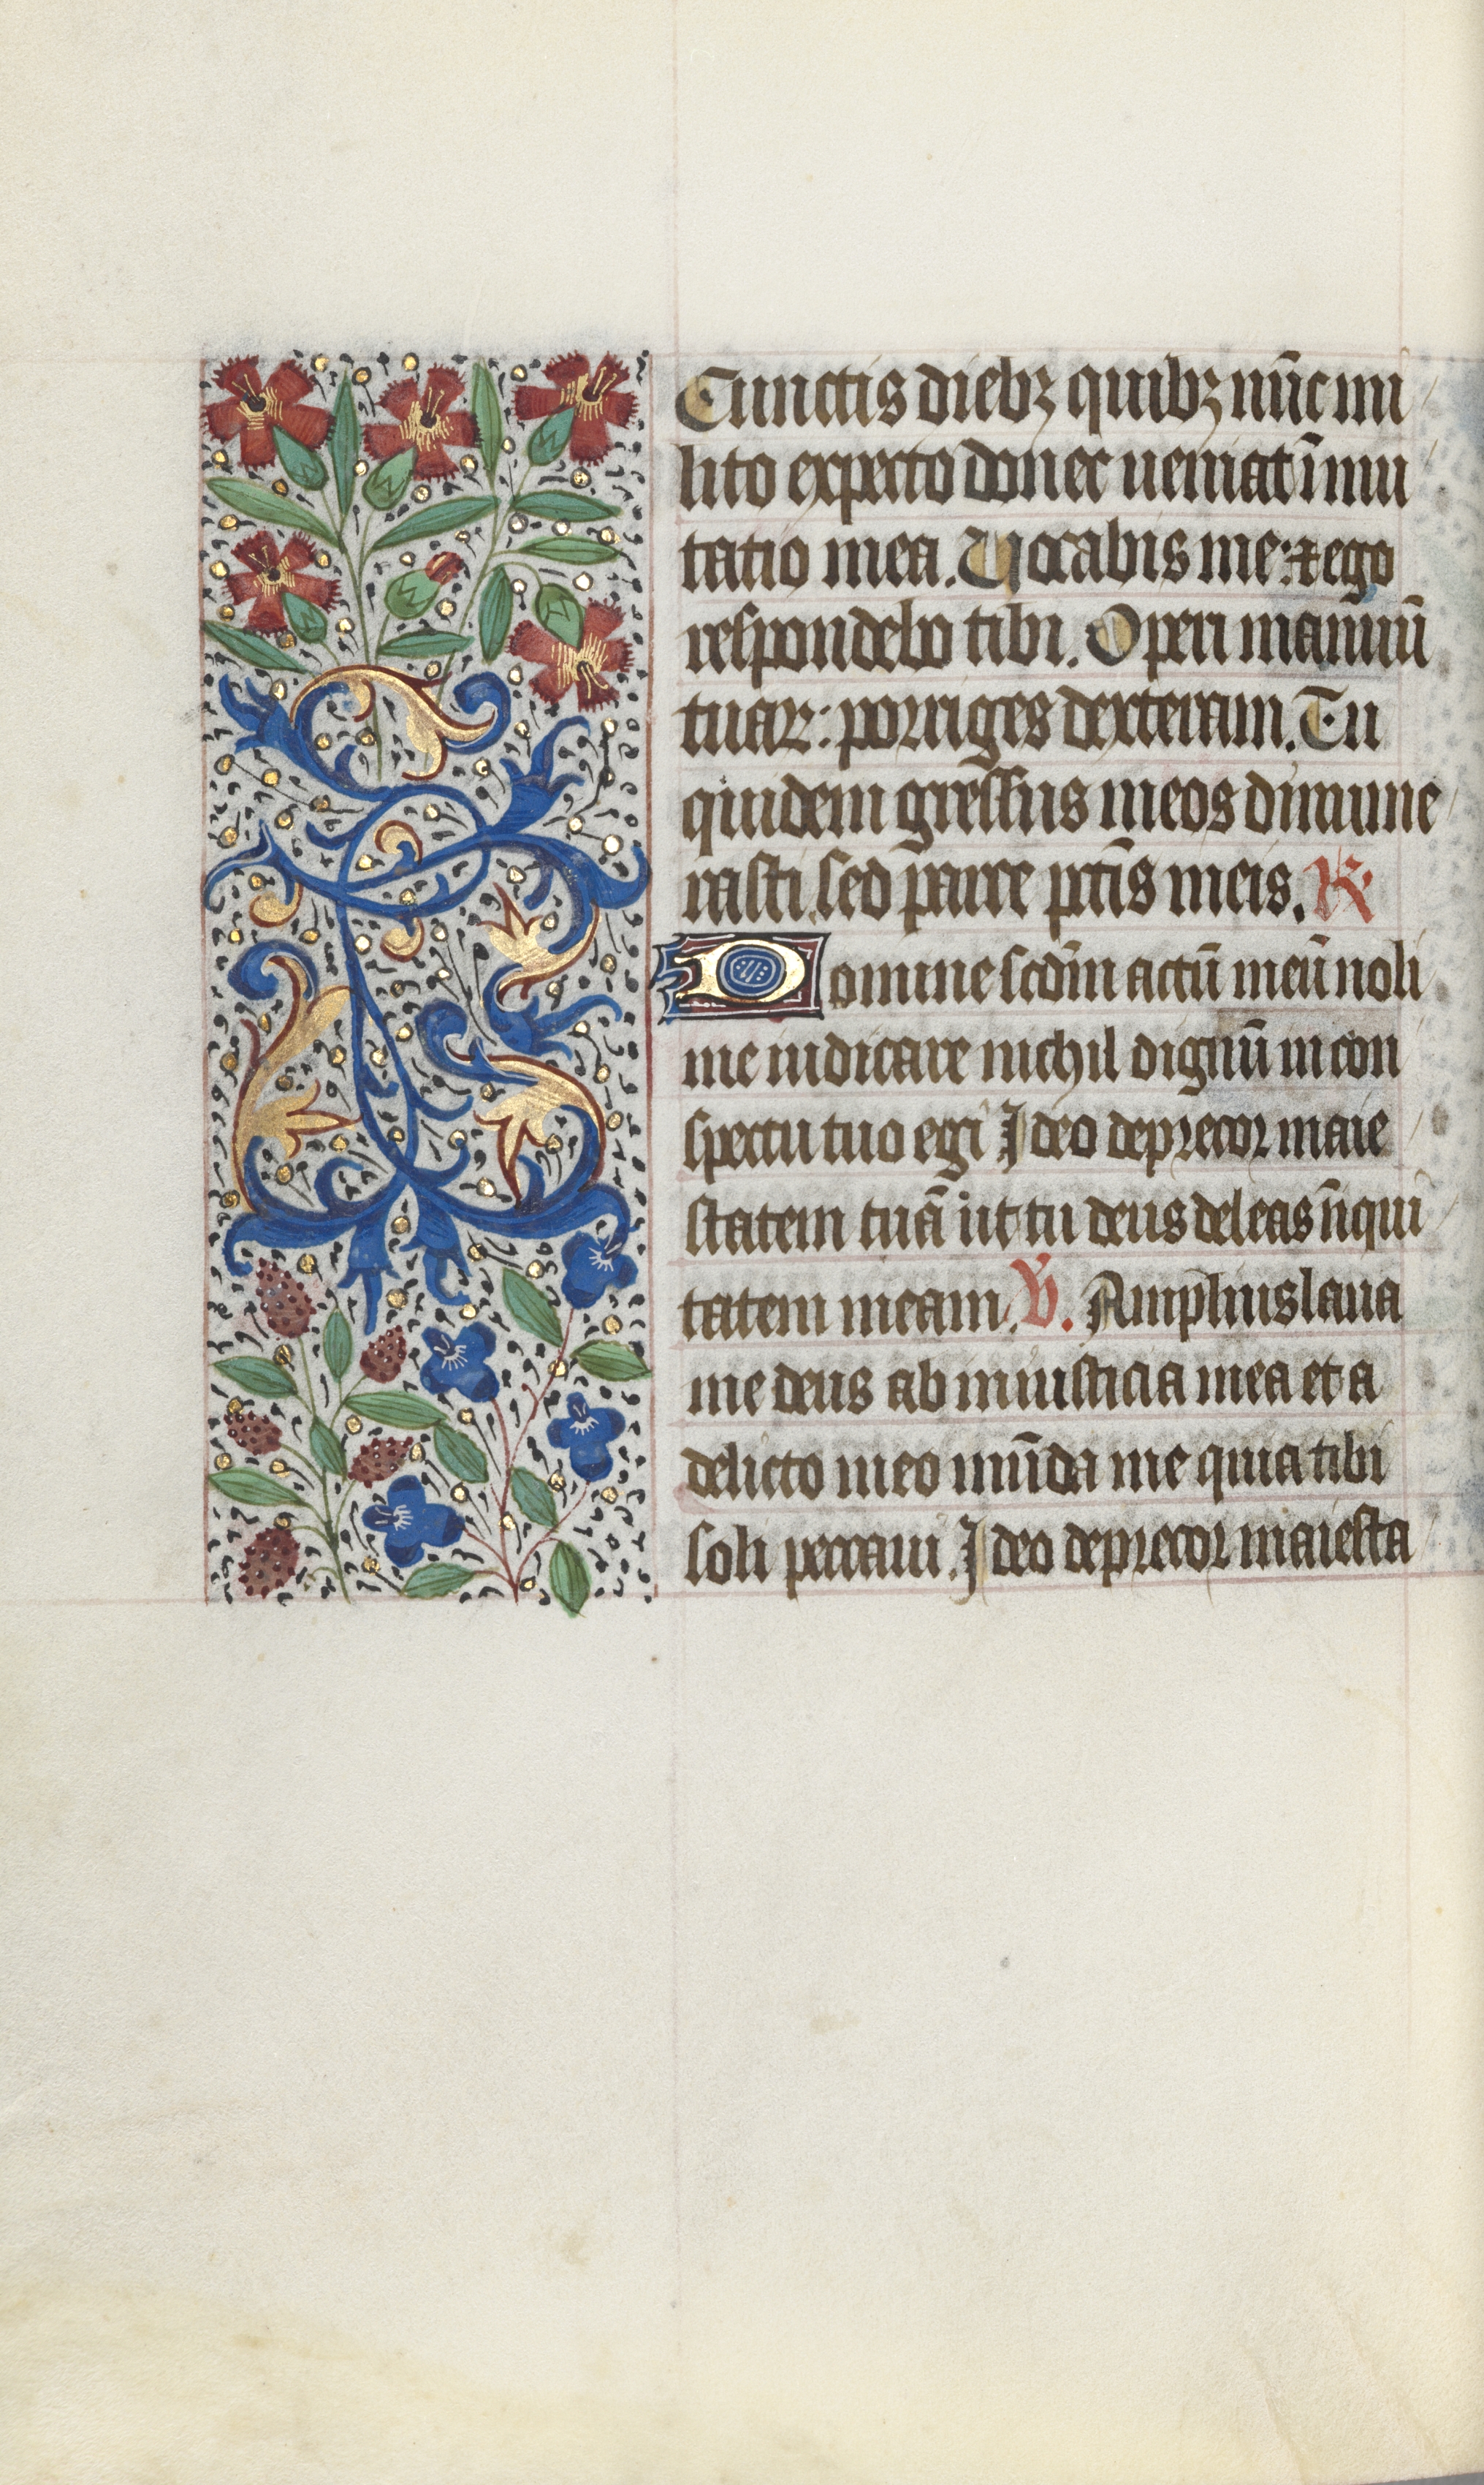 Cunctis diebꝫ quibꝫ nūc mi
lito expecto donec ueniat īmu
tatio mea. Uocabis me: ⁊ ego
respondebo tibi. Operi manuū
tuaꝝ: porriges dexteram. Tu
quidem gressus meos dinume
rasti. sed parce pctīs meis. R
Domine scdm̄ actū meū noli
me iudicare nichil dignū in con
spectu tuo egi Ideo deprecor maie
statem tuā ut tu deus deleas īniqui
tatem meam. V. Amplius laua
me deus ab iniusticia mea et a
delicto meo mūda me quia tibi
soli peccaui. Ideo deprecor maiesta